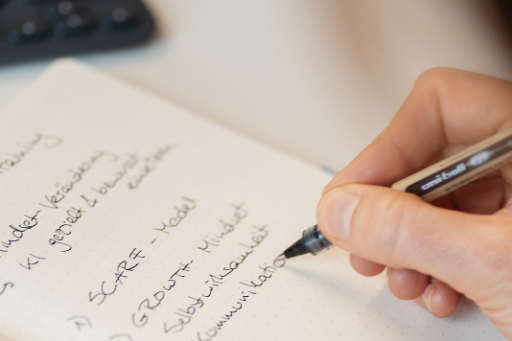 Training
Mindset Veränderung
KI gezielt & bewusst
einsetzen
1) SCARF - Modell
GROWTH - Mindset
Selbstwirksamkeit
Kommunikatio
uni-ball